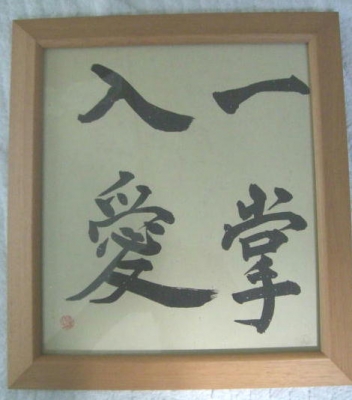 一掌
入愛